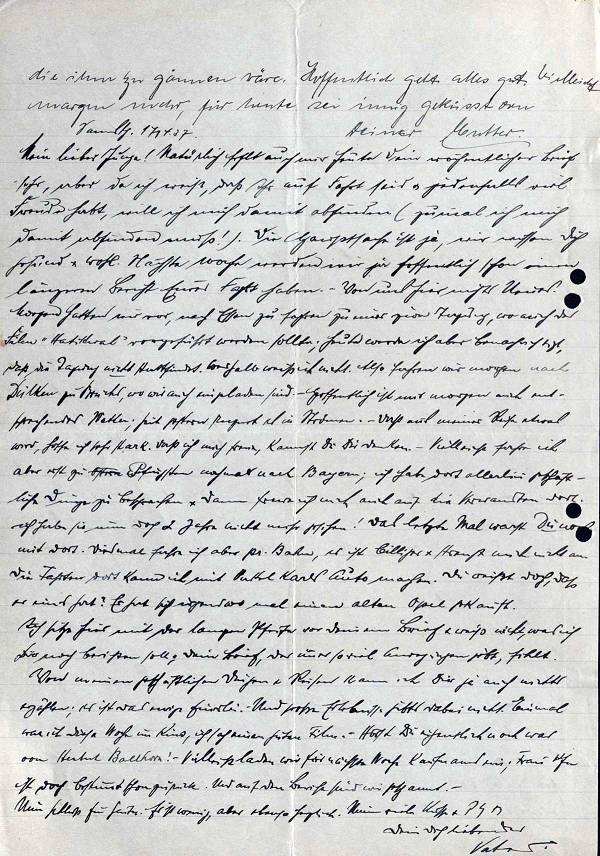 die ihm zu gönnen wäre. Hoffentlich geht alles gut. Vielleicht
morgen mehr, für heute sei innig geküsst von
Deiner Mutter.
Mein lieber Junge! Natürlich fehlt auch mir heute Dein wöchentlicher Brief
sehr, aber da ich weiß, daß Ihr auf Fahrt seid u. jedenfalls viel
Freude habt, will ich mich damit abfinden (zumal ich mich
damit abfinden muß!). Die Hauptsache ist ja, wir wissen Dich
gesund u. wohl. Nächste Woche werden wir ja hoffentlich schon einen
längeren Bericht Eurer Fahrt haben. - Von uns hier nichts Neues.
Morgen hatten wir vor, nach Essen zu fahren zu einer Tagung, wo auch der
Film vorgeführt werden sollte; heute werde ich aber benachrichtigt,
daß die Tagung nicht stattfindet, weshalb weiß ich nicht. Also fahren wir morgen nach
Dülken zu wo wir auch eingeladen sind. - Hoffentlich ist nur morgen auch ent-
sprechendes Wetter, seit gestern regnet es in Strömen. - Daß aus meiner Reise etwas
wird, hoffe ich sehr stark. Daß ich mich freue, kannst Du Dir denken. - Vielleicht fahre ich
aber erst zu Pfingsten nochmal nach Bayern; ich habe dort allerlei geschäft-
liche Dinge zu besprechen u. dann freue ich mich auch auf die Verwandten dort.
ich habe sie nun doch 2 Jahre nicht mehr gesehen! Das letzte Mal warst Du noch
mit dort. Diesmal fahre ich aber per Bahn, es ist billiger u. strengt auch nicht an.
Die Fahrten dort kann ich mit Onkel Karls Auto machen. Du weißt doch, daß
er eins hat? Er hat sich irgendwo mal einen alten Opel gekauft.
Ich sitze hier mit der langen Pfeife vor Deinem Brief u. weiß nicht, was ich
Dir noch berichten soll; Dein Brief, der immer soviel Anregungen gibt, fehlt.
Von meinen geschäftlichen Dingen u. Reisen kann ich Dir ja auch nichts
erzählen; es ist das ewige Einerlei. - Und große Erlebnisse gibts dabei nicht. Einmal
war ich diese Woche im Kino, ich sah einen guten Film. - Hörst Du eigentlich noch was
von Herbert - Vielleicht laden wir für nächste Woche Kaufmanns ein; Frau
ist doch bestimmt schon gespannt. Und auf den Bericht sind wir gespannt. -
Nun Schluß für heute. Es ist wenig, aber ebenso herzlich. Nimm viele Küsse u.
Dein Dich liebender
Vater.